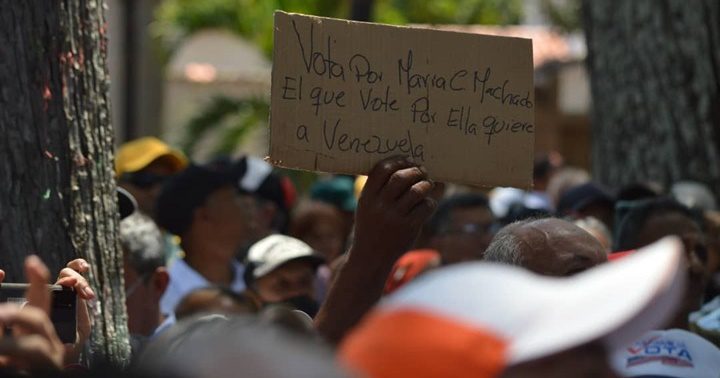 Vota Por Maria C Machado
El que Vote Por Ella quiere
a Venezuela.
VOTA